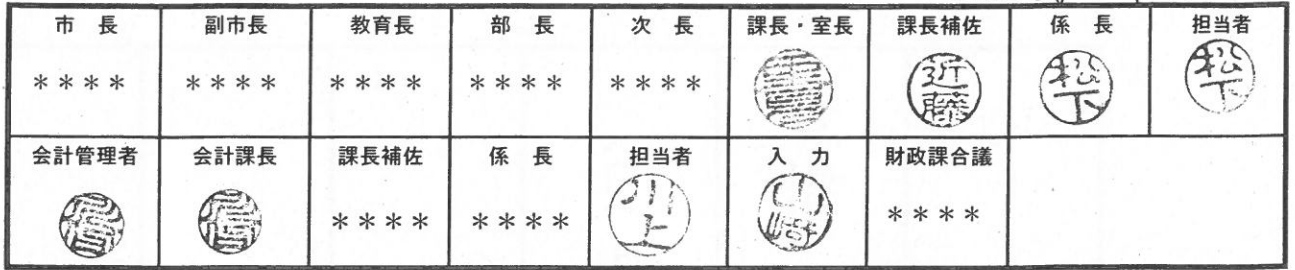 市 長 副市長 教育長 部 長 次 長 課長・室長 課長補佐 係 長 担当者
＊＊＊＊ ＊＊＊＊ ＊＊＊＊ ＊＊＊＊ ＊＊＊＊ 近藤 松下 松下
会計管理者 会計課長 課長補佐 係 長 担当者 入 力 財政課合議
＊＊＊＊ ＊＊＊＊ 川上 山崎 ＊＊＊＊